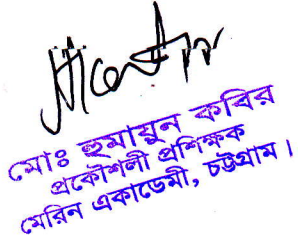 মোঃ হুমায়ুন কবির
প্রকৌশলী প্রশিক্ষক
মেরিন একাডেমী, চট্টগ্রাম।